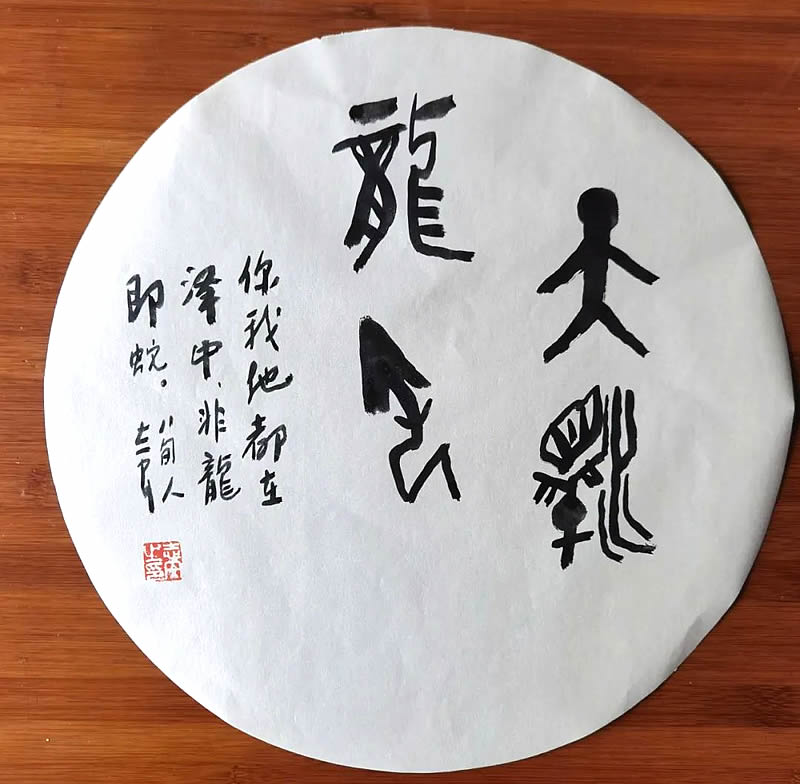 大澤
龍蛇
你我他都在
泽中、非龍
即蛇。
八旬人